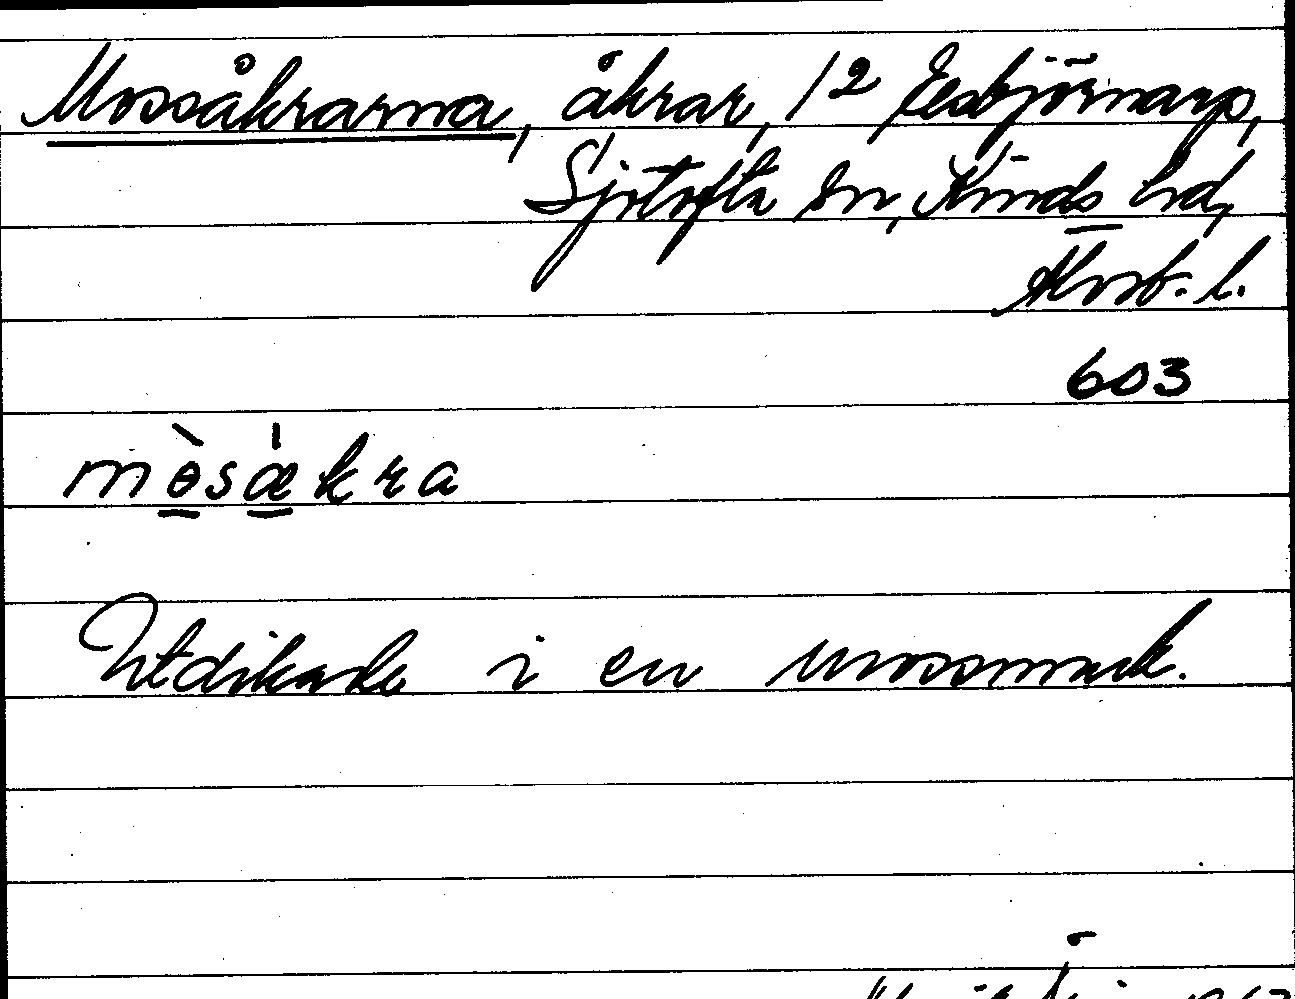 Mossåkrarna, åkrar, 1² Esbjörnarp,
Sjötofta sn, Kinds hd,
Älvsb. l.
603
mòsækra
Utdikade i en mossmark.